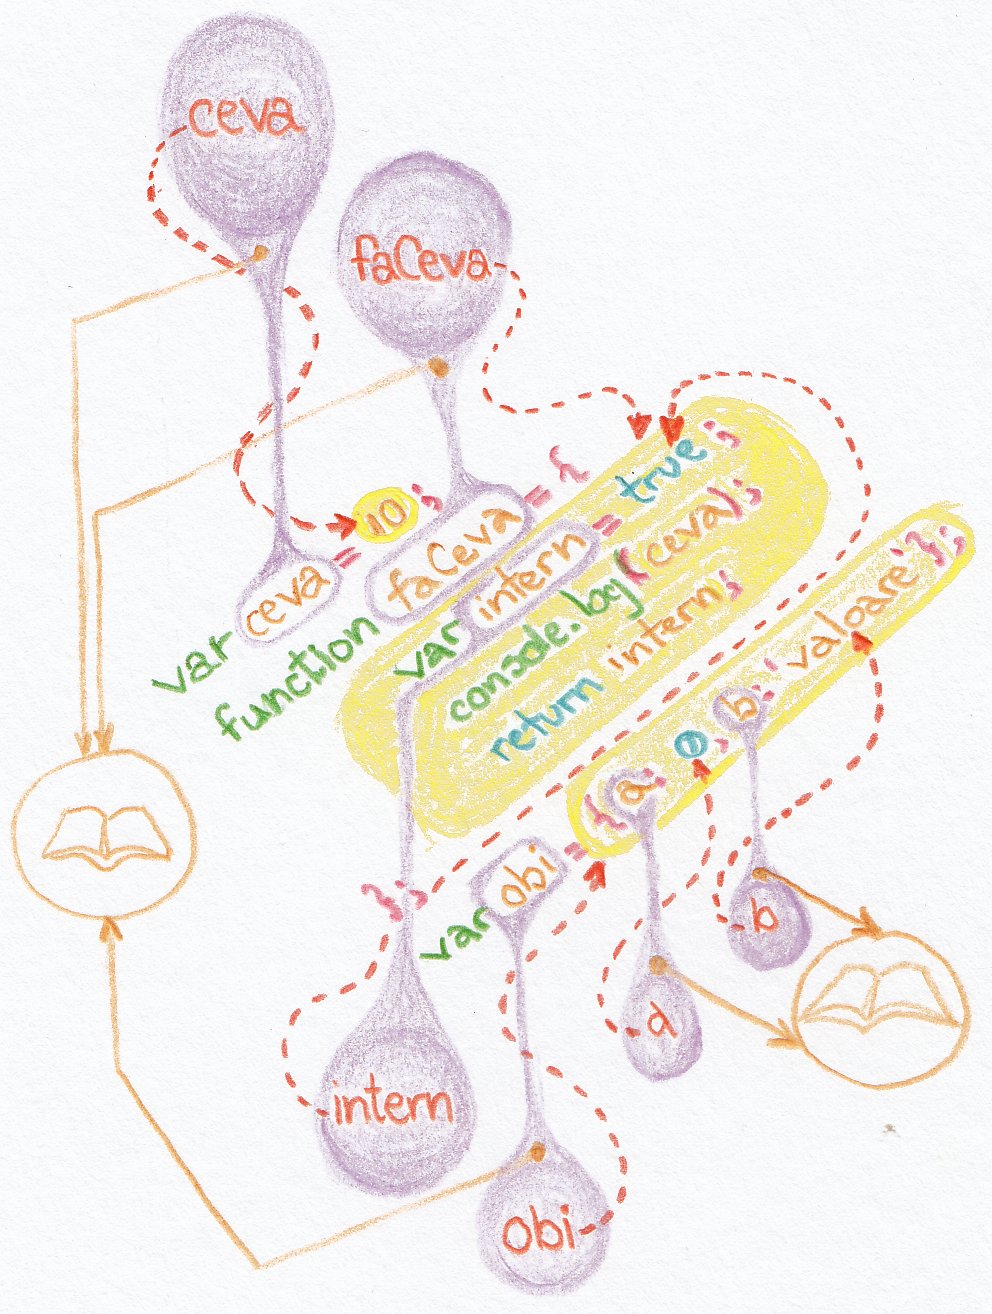 ceva
faCeva
var ceva = 10;
function faCeva = {
var intern = true;
console.log(ceva);
return intern;
};
var obi = {a: 1, b: 'valoare'};
b
a
intern
obi